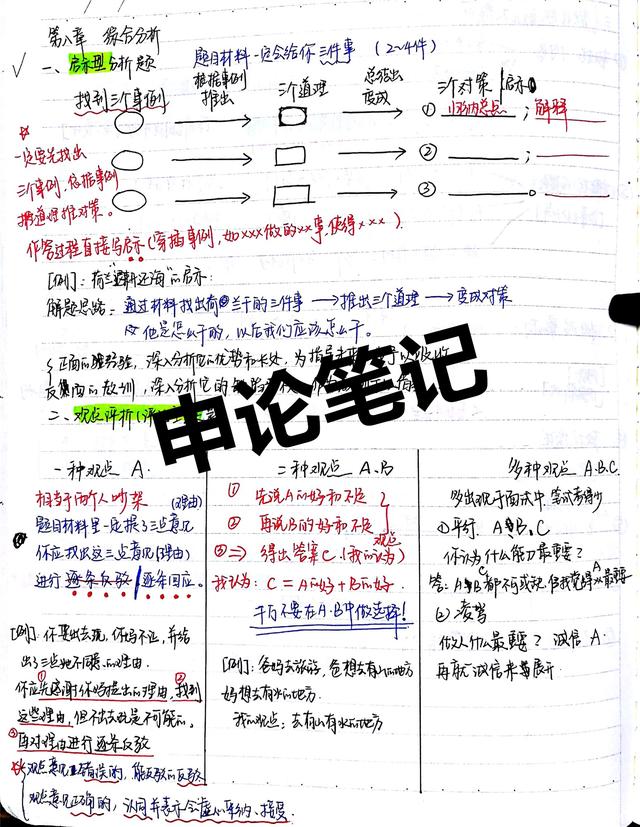 第八章 综合分析
一、启示型分析题 题目材料一定会给你三件事 (2~4件)
找到三个事例 根据事例推出 三个道理 总结出变成 三个对策/启示
① 归纳总点；解释
一定要先找出
三个事例,依据事例
② ；
据道理推对策。
③ 。
作答过程直接写启示(穿插事例,如xxx做的xx事,使得xxx)。
[例]：荷兰"退耕还海"的启示:
解题思路：通过材料找出荷兰干的三件事 → 推出三个道理 → 变成对策
他是怎么干的,以后我们应该怎么干。
正面的经验,深入分析它的优势和长处,为指导
反面的教训,深入分析它的
申论笔记
二、观点评析
一种观点 A.
相当于两个人吵架 (理由)
题目材料里一定摆了三点意见
你应找出这三点意见(理由)
进行逐条反驳/逐条回应。
[例]：你要出去玩,你妈不让,并给
出了三点她不同意的理由.
你应先感谢你妈提出的理由,找到
这些理由,但不出去玩是不可能的。
再对理由进行逐条反驳
观点意见错误的,能反驳的反驳
观点意见正确的,认同并表示会虚心采纳、接受
二种观点 A、B
① 先说A的好和不足
② 再说B的好和不足
观点
③ ⇒ 得出答案C.(我认为)
我认为: C=A的好+B的好.
千万不要在A.B中做选择!
[例]：爸妈去旅游,爸想去有山的地方
妈想去有水的地方.
我的观点：去有山有水的地方
多种观点 A.B.C.
多出现于面试中,笔试考得少
①平行. A、B、C
你认为什么能力最重要?
答：A B C 都不可或缺,但我觉得A最重要
②凌驾
做人什么最重要? 诚信 A.
再就诚信来展开.